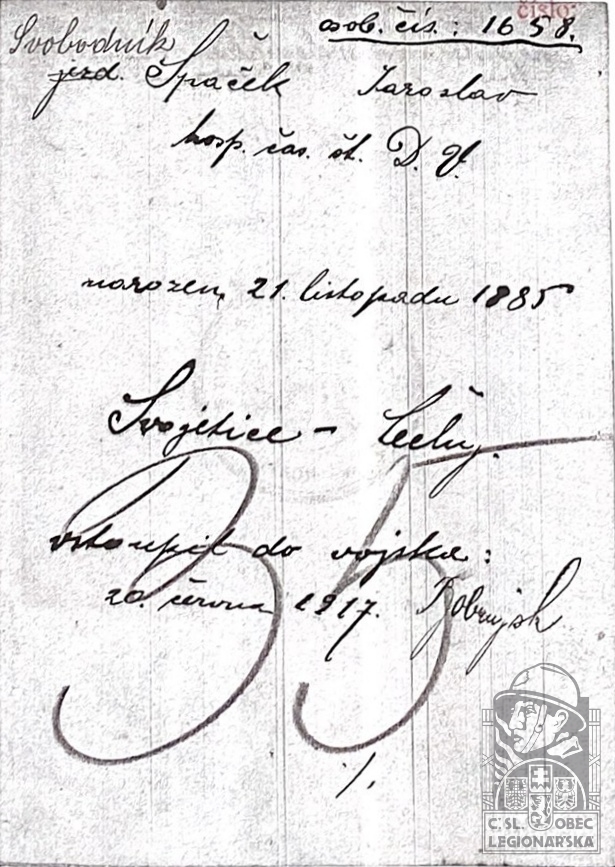 číslo:
osob. čís.: 1658.
Svobodník
jezd. Špaček Jaroslav
hosp. čas. št. D. O.
narozen, 21. listopadu 1885
Svojetice – Čechy.
35
vstoupil do vojska:
20. června 1917. Bobrujsk
./.
Č. SL. OBEC
LEGIONÁŘSKÁ